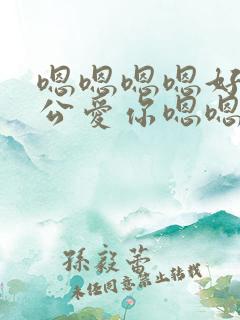 嗯嗯嗯嗯好
公爱你嗯嗯
孫毅蕾
未经同意禁止转载